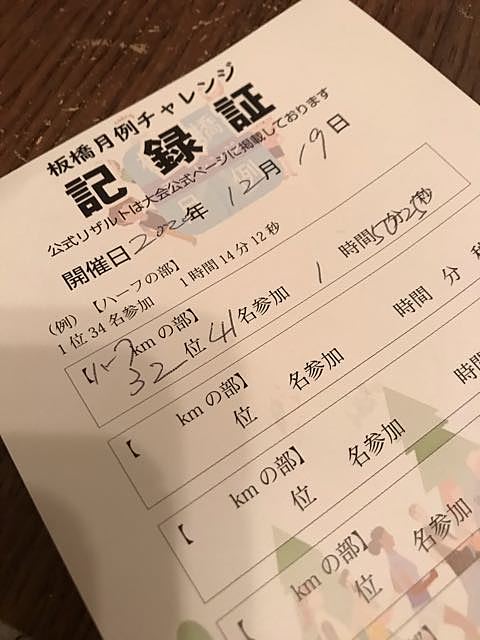 板橋月例チャレンジ
記録証
公式リザルトは大会公式ページに掲載しております
開催日 年 12月 19日
(例) 【ハーフの部】
1位 34名参加 1時間14分12秒
【ハーフkmの部】
32位 41名参加 1時間50分25秒
【 kmの部】
位 名参加 時間 分 秒
【 kmの部】
位 名参加 時間
【 kmの部】
位 名参加
【 kmの部】
位 名参加